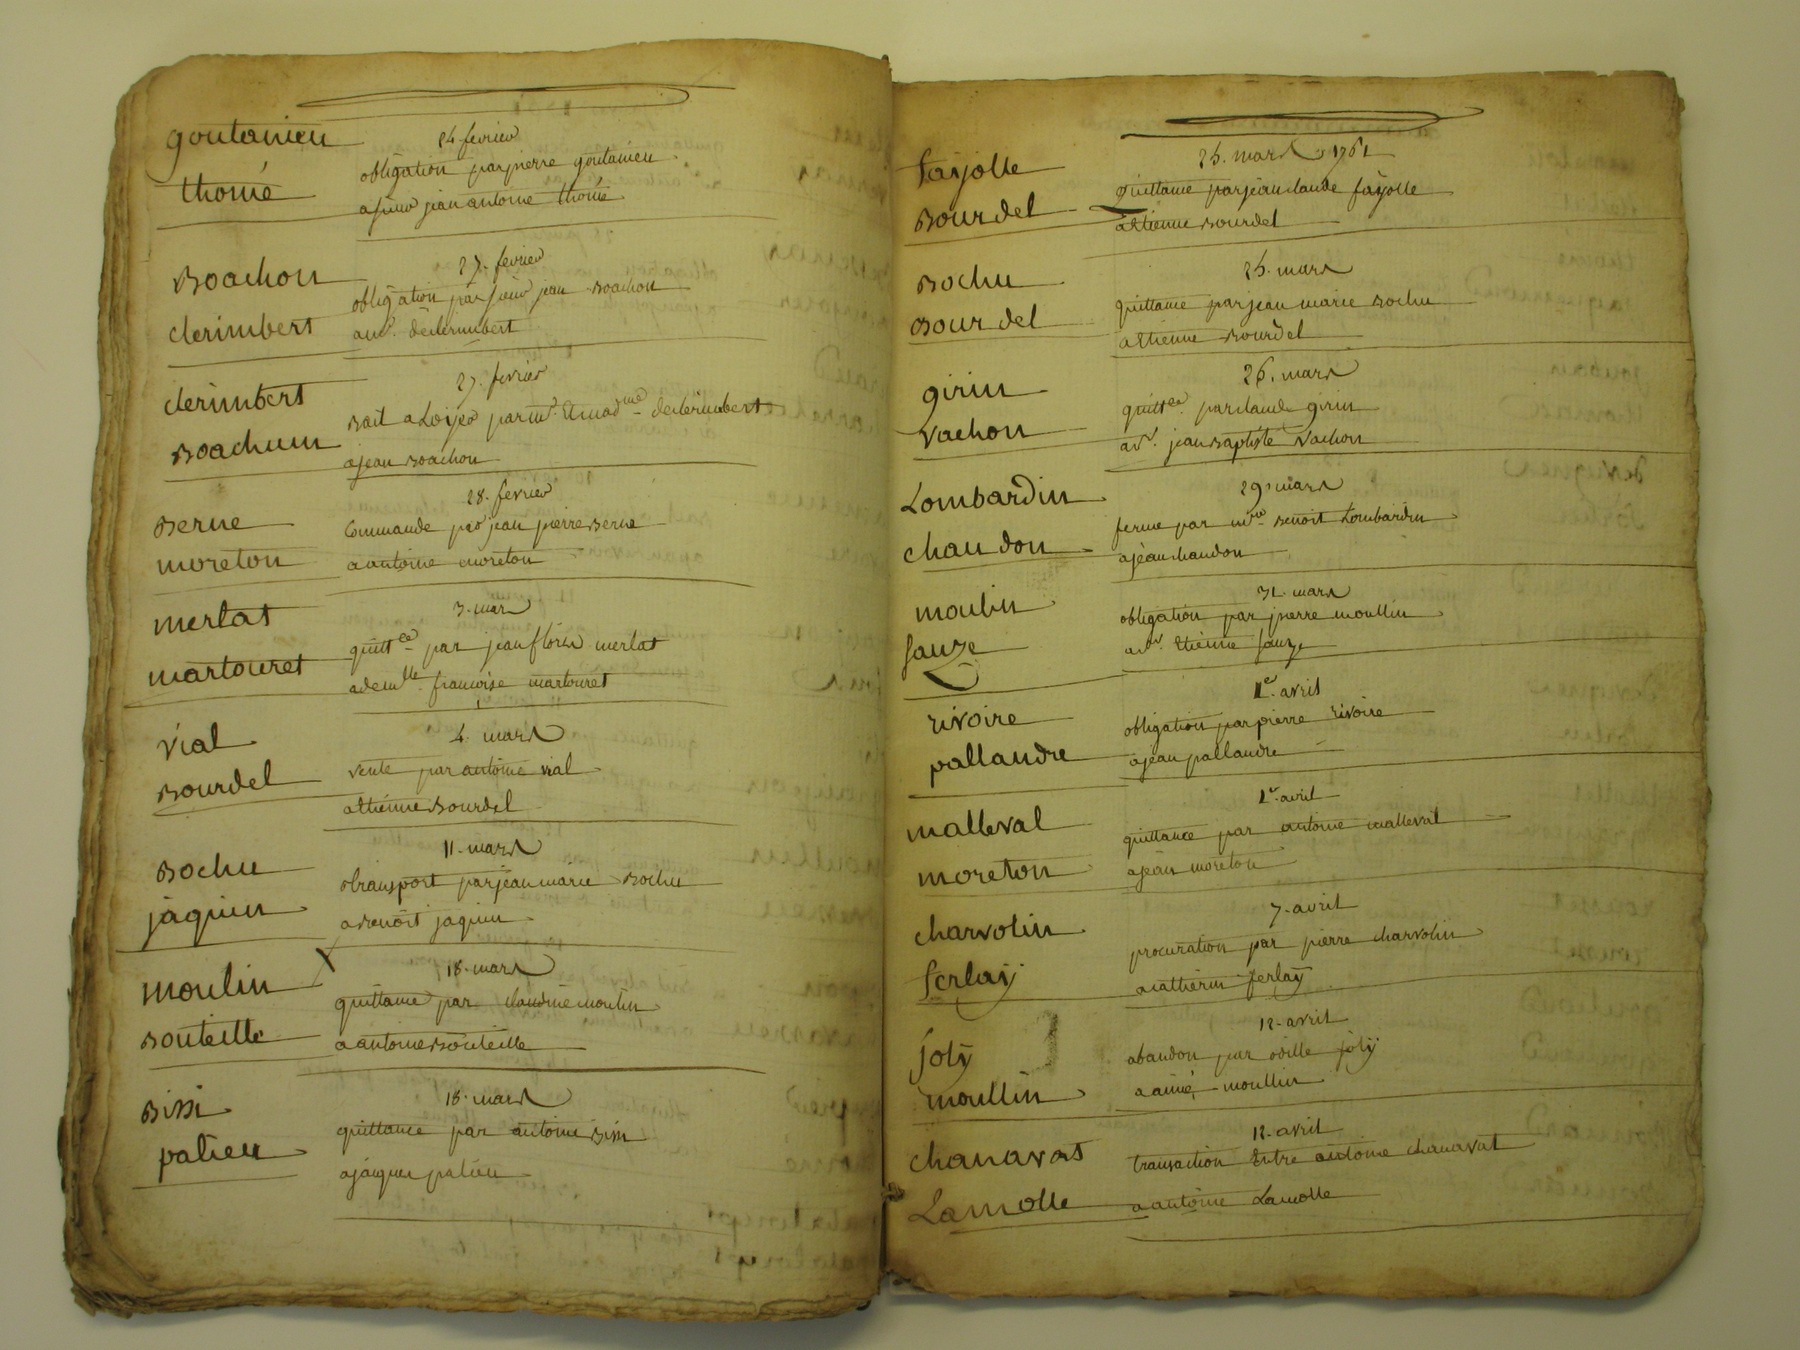 goutanieu
thomé
24 fevrier
obligation par pierre goutanieu
a sieur jean antoine thomé
Boachon
clerimbert
27. fevrier
obligation par sieur jean Boachon
a mr. declerimbert
clerimbert
Boachon
27. fevrier
Bail a Loyer par mr. et mad.me declerimbert
a jean Boachon
Berne
moreton
28. fevrier
Commande par jean pierre Berne
a antoine moreton
merlat
martouret
3. mars
quittce par jean floris merlat
a demlle francoise martouret
vial
Bourdel
4. mars
vente par antoine vial
a etienne Bourdel
Bochu
jaquier
11. mars
transport par jean marie Bochu
a Benoit jaquier
moulin
Bouteille
18. mars
quittance par claudine moulin
a antoine Bouteille
Bissi
patieu
18. mars
quittance par antoine Bissi
a jaques patieu
fayolle
Bourdel
25. mars 1761
quittance par jean claude fayolle
a etienne Bourdel
Bochu
Bourdel
25. mars
quittance par jean marie Bochu
a etienne Bourdel
girin
vachon
26. mars
quittce. par claude girin
a sr. jean Baptiste vachon
Lombardin
chaudon
29 mars
ferme par mre Benoit Lombardin
a jean chaudon
moulin
sauze
31. mars
obligation par pierre moullin
a sr. etienne sauze
rivoire
pallandre
1er. avril
obligation par pierre rivoire
a jean pallandre
malleval
moreton
1er. avril
quittance par antoine malleval
a jean moreton
charvolin
ferlaÿ
7. avril
procuration par pierre charvolin
a catherin ferlaÿ
jolÿ
moullin
12. avril
abandon par odille jolÿ
a aimé moullin
chanavat
Lamolle
12. avril
transaction Entre antoine chanavat
a antoine Lamolle